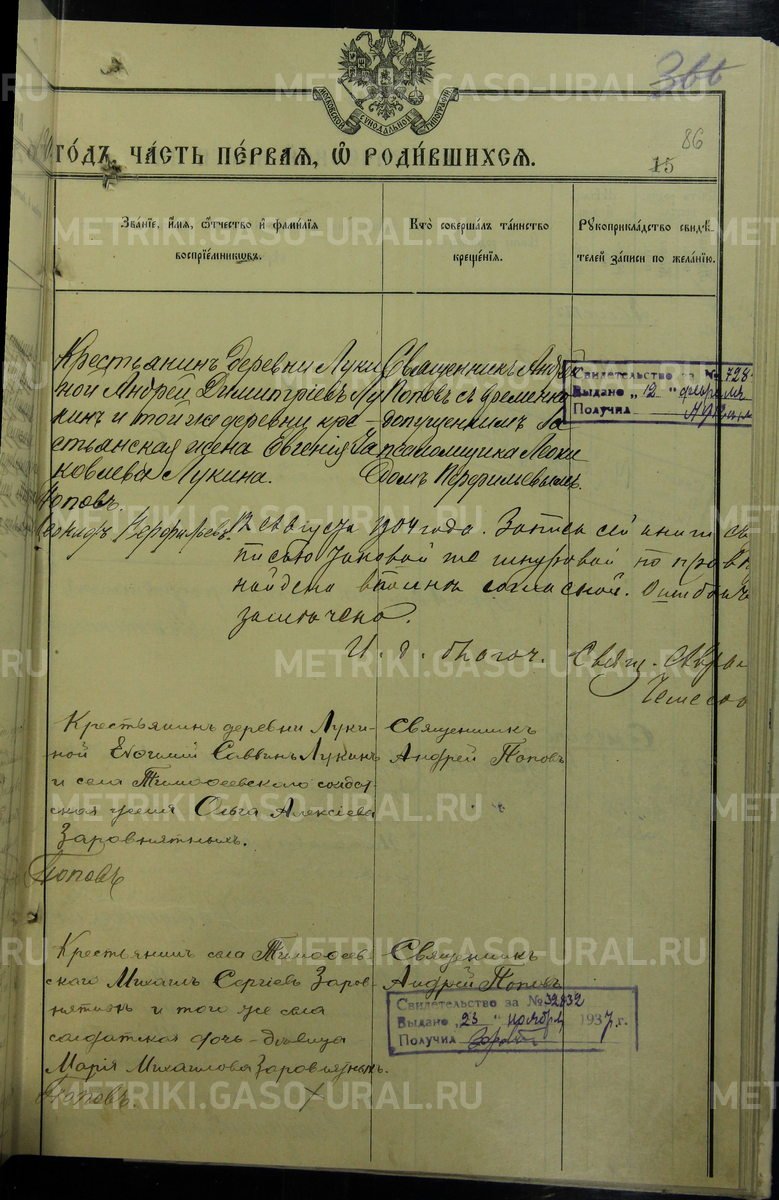 МОСКОВСКОЙ СѴНОДАЛЬНОЙ ТИПОГРАФІИ
86
15
ГО́ДЪ, ЧА́СТЬ ПЕ́РВАЯ, Ѡ҆ РОДИ́ВШИХСЯ.
Зва́ніе, и҆́мя, ѻ҆́тчество и҆ фами́лія
воспріе́мниковъ.
Кто̀ соверша́лъ та́инство
креще́нія.
Рꙋкоприкла́дство свидѣ́-
телей за́писи по жела́нію.
Крестьянинъ деревни Луки
ной Андрей Димитріевъ Лу
кинъ и той же деревни кре-
стьянская жена Евгенія Іа
ковлева Лукина.
Священникъ Андрей
Поповъ съ временно
допущеннымъ
псаломщика
Перфильевымъ.
Свидетельство за № 728
Выдано „12" февраля
Получил
Поповъ.
Перфильевъ.
12 Августа 1904 года. Запись сей книги
писью таковой же шнуровой по
найдена вполнѣ согласной.
И. д. благоч. Свящ.
Крестьянинъ деревни Луки-
ной Евѳимій Саввинъ Лукинъ
и села Тимоѳеевского солдат-
ская жена Ольга Алексіева
Заровнятныхъ.
Священникъ
Андрей Поповъ
Поповъ
Крестьянинъ села Тимоѳеев-
ского Михаилъ Сергіевъ Заров-
нятныхъ и того же села
солдатская дочь-дѣвица
Марія Михаилова Заровнятныхъ.
Священникъ
Андрей Поповъ
Свидетельство за № 32832
Выдано „23" ноября 1937 г.
Получил
Поповъ.
METRIKI.GASO-URAL.RU